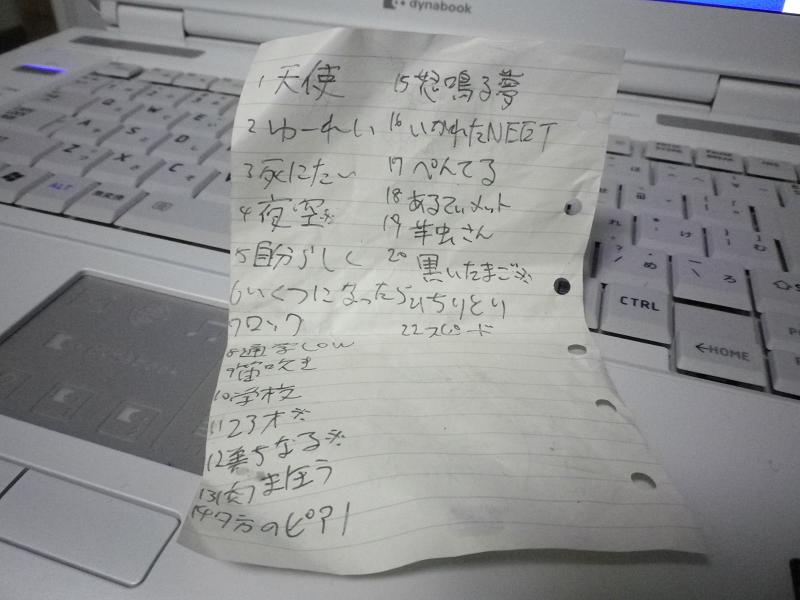 dynabook
1 天使
2 ゆーれい
3 死にたい
4 夜空※
5 自分らしく
6 いくつになったら
7 ロック
8 通学LOW
9 笛吹き
10 学校
11 23才※
12 美ちなる※
13 まほう
14 夕方のピアノ
15 怒鳴る夢
16 いかれたNEET
17 ぺんてる
18 あるてぃメット
19 芋虫さん
20 黒いたまご※
21 ちりとり
22 スピード
CTRL
←HOME
ALT